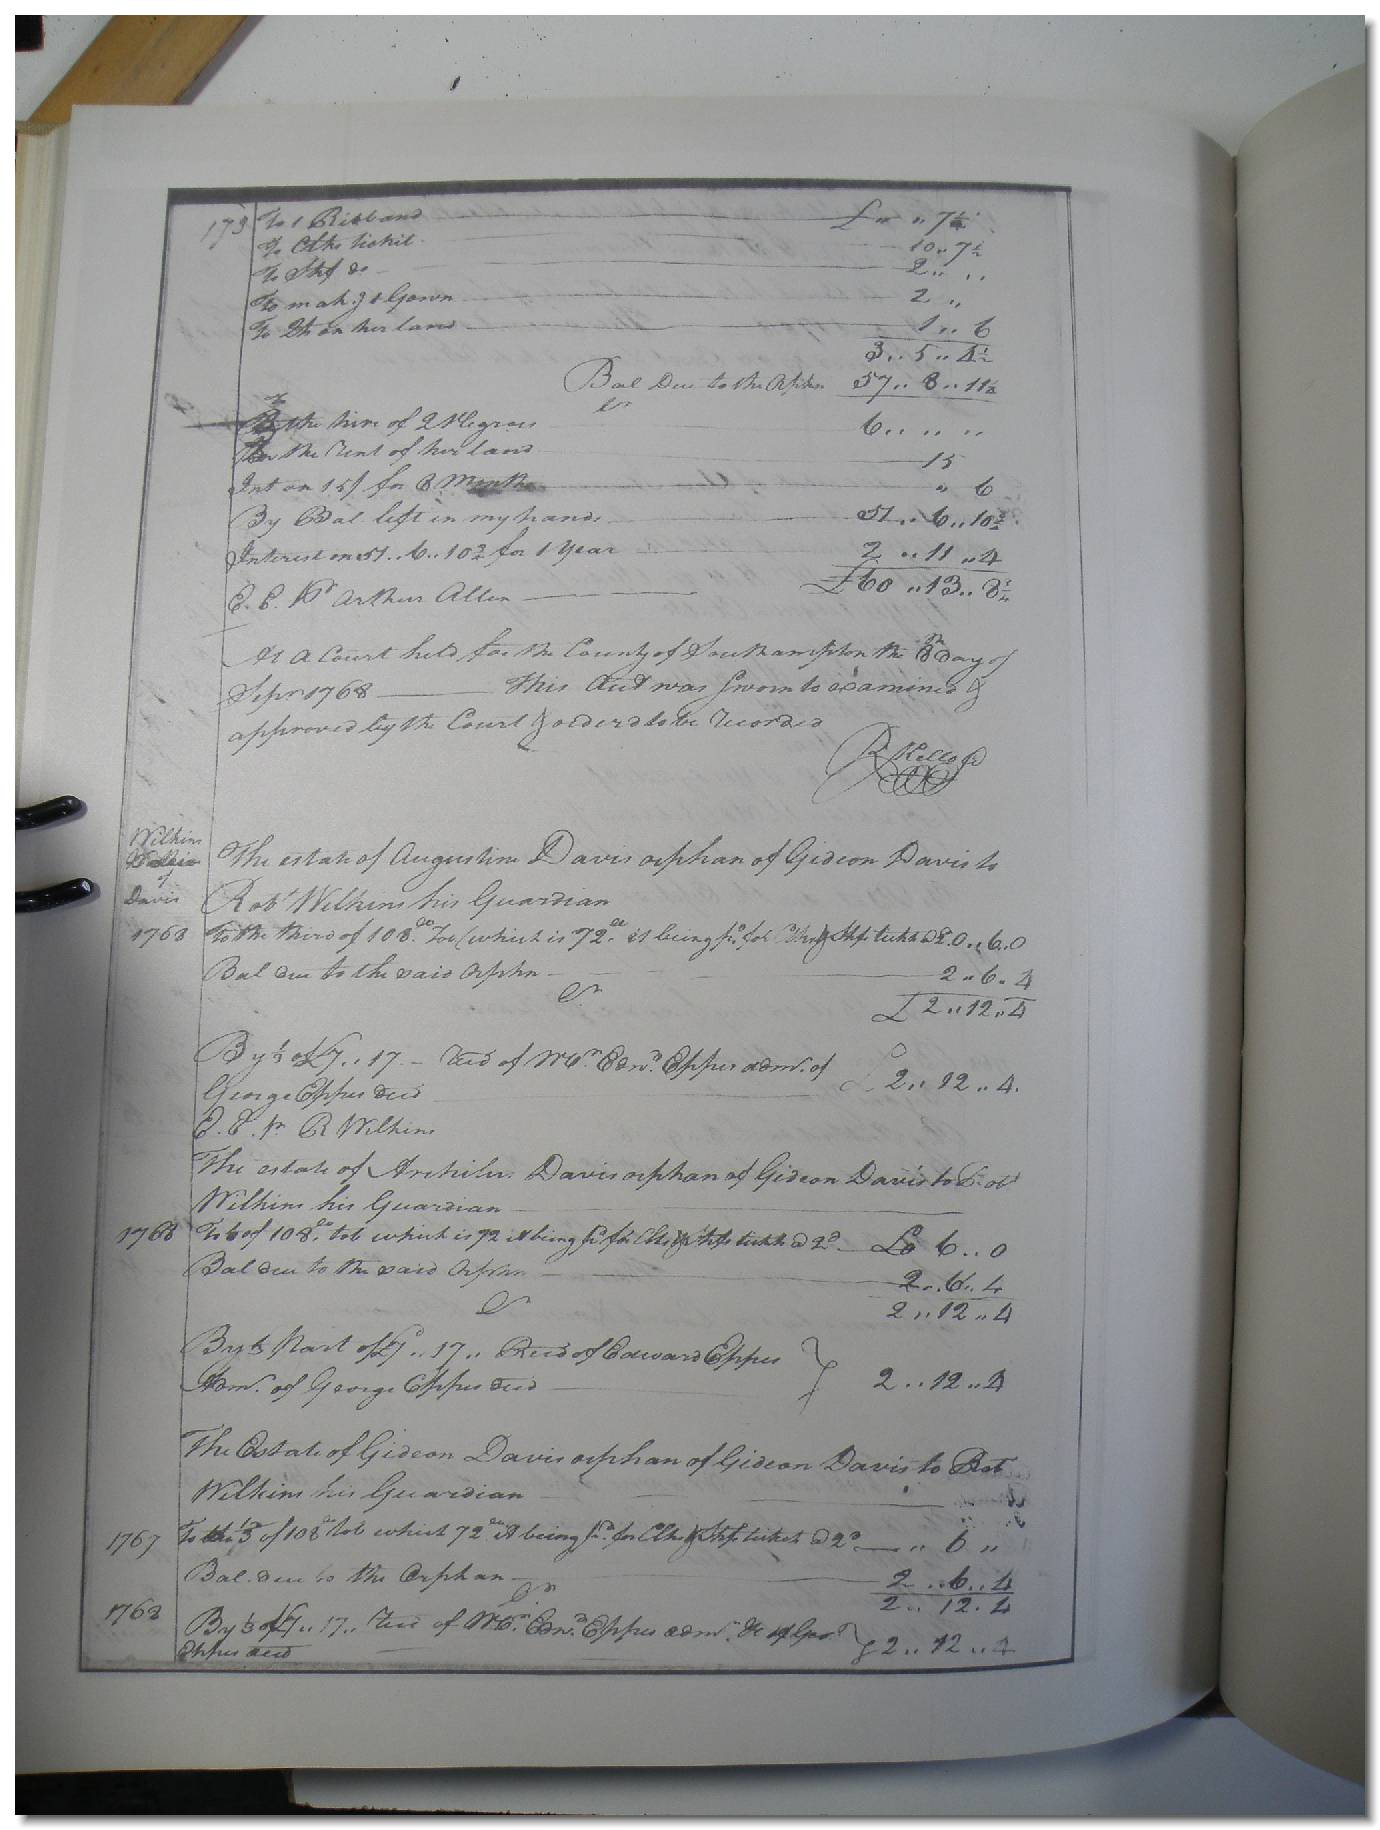 173 To 1 Ribband £ " " 7½
To Clks ticket 10 " 7½
To Shf do 2 " "
To mak.g 1 Gown 2 "
To 2ts on her land 1 " 6
3 " 5 " 4½
Bal Due to the Orphn 57 " 8 " 11½
Cr
By the hire of 2 Negroes 6 " " "
the Rent of her land 15
Int on 15/ for 8 Months " 6
By Bal left in my hands 51 " 6 " 10½
Interest on 51 " 6 " 10½ for 1 Year 2 " 11 " 4
E. E. Pr Arthur Allen £60 " 13 " 8½
At a Court held for the County of Southampton the 8th day of
Sepr 1768 This Acct was Sworn to examined &
approved by the Court & orderd to be recorded
R Kello
Wilkins
of
Davis
The estate of Augustine Davis orphan of Gideon Davis to
Robt Wilkins his Guardian
1768 To the third of 108 do Tob (which is 72 do it being pd for Clks & Shfs tickts @ 2. 0 " 6. 0
Bal due to the said Orphn 2 " 6 " 4
Cr
£ 2 " 12 " 4
By ⅓ of £7 " 17 - Recd of Mr Edwd Eppes admr. of
George Eppes decd £ 2 " 12 " 4.
E. E. pr R Wilkins
The estate of Archilus Davis orphan of Gideon Davis to Rob
Wilkins his Guardian
1768 To of 108 do tob which is 72 it being pd for Clks & Shfs tickts @ 2d £0 6 " 0
Bal due to the said Orphn 2 " 6 " 4
Cr 2 " 12 " 4
By ⅓ Part of £7 " 17 " Recd of Edward Eppes
Admr. of George Eppes decd 2 " 12 " 4
The Estate of Gideon Davis orphan of Gideon Davis to Rob
Wilkins his Guardian
1767 To the ⅓ of 108 do tob which 72 do it being pd for Clks & Shfs tickts @ 2d " 6 "
Bal. due to the Orphan 2 " 6 " 4
Cr 2 " 12 " 4
1768 By ⅓ of £7 " 17 " Recd of Mr. Edwd. Eppes admr. &c of Geo
Eppes decd 2 " 12 " 4